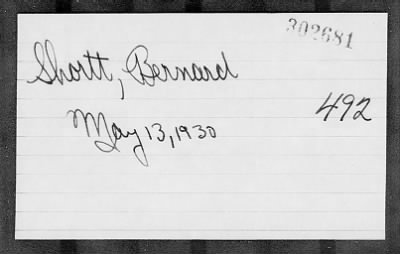 302681
Shortt, Bernard
492
May 13, 1930